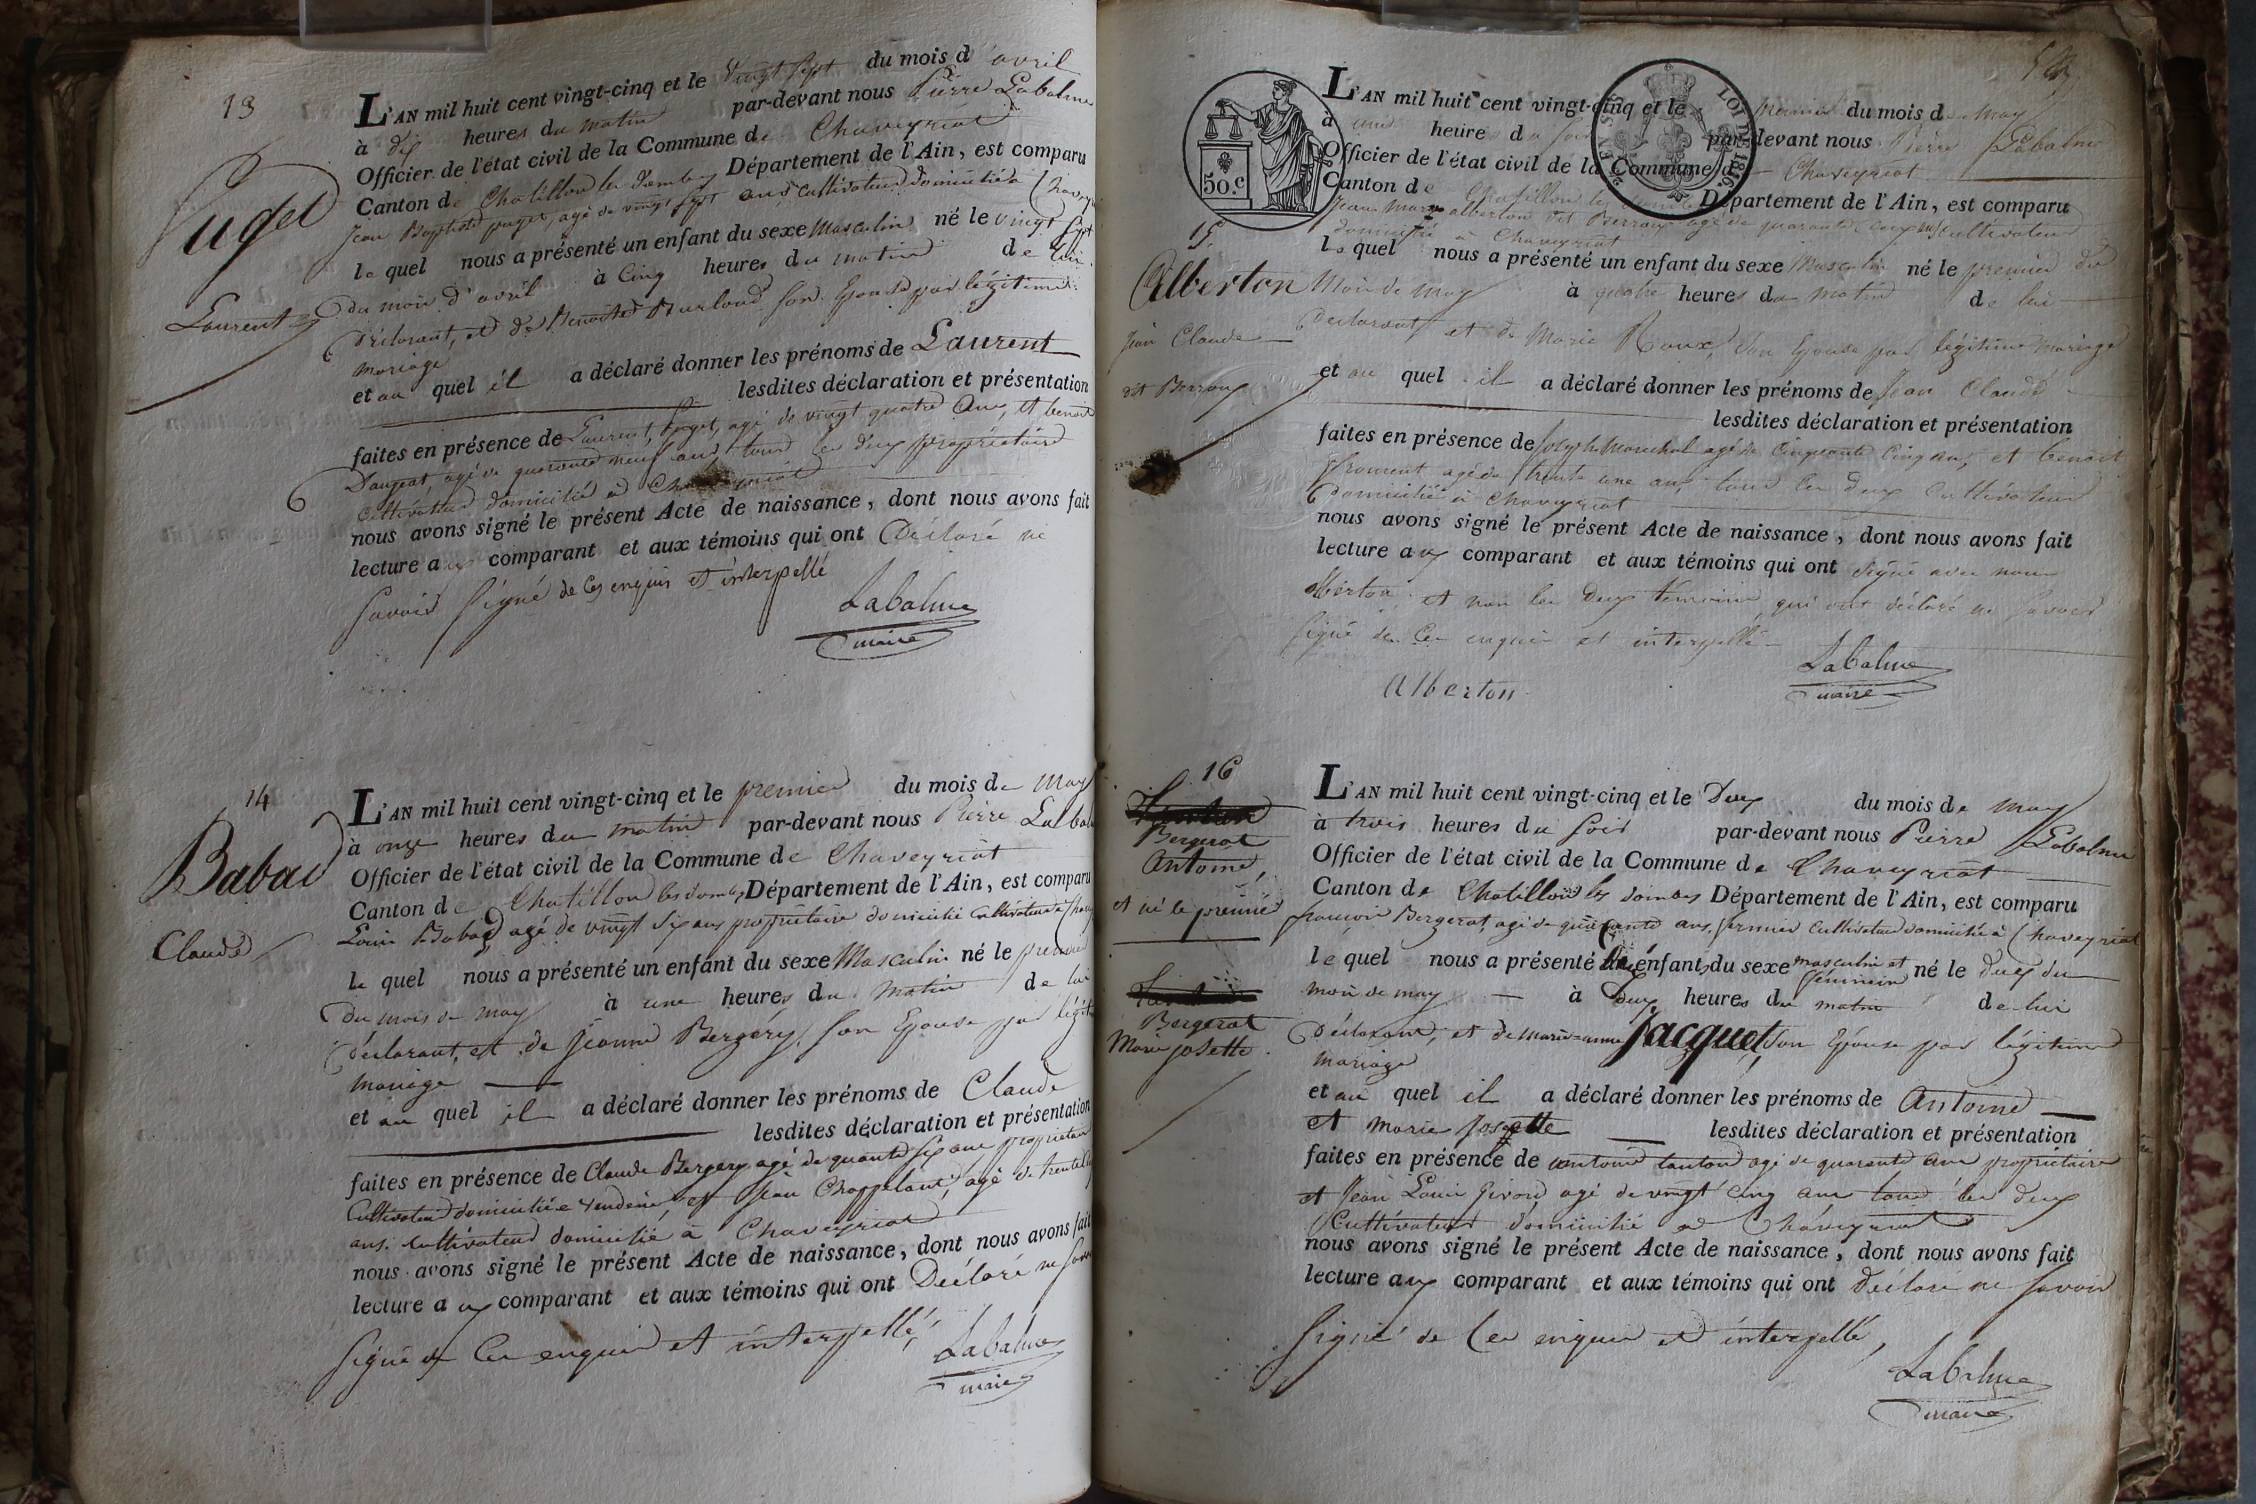 13
Puget
Laurent
L'AN mil huit cent vingt-cinq et le vingt sept du mois d'avril
à dix heures du matin par-devant nous Pierre Labalme
Officier de l'état civil de la Commune de Chaveyriat
Canton de Chatillon les Dombes Département de l'Ain, est comparu
Jean Baptiste puget, agé de vingt sept ans cultivateur domicilié à Chavey
le quel nous a présenté un enfant du sexe Masculin né le vingt sept
du mois d'avril à cinq heures du matin de lui
Déclarant, et de Benoite Burloud son Epouse par légitime
mariage
et au quel il a déclaré donner les prénoms de Laurent
lesdites déclaration et présentation
faites en présence de Laurent puget, agé de vingt quatre ans, et benoit
agé de quarante neuf ans tous les deux propriétaire
cultivateur domicilié à Chaveyriat
nous avons signé le présent Acte de naissance, dont nous avons fait
lecture aux comparant et aux témoins qui ont Déclaré ne
savoir signé de ces enquis et interpellé
Labalme
maire
14
Babad
Claude
L'AN mil huit cent vingt-cinq et le premier du mois de May
à onze heures du matin par-devant nous Pierre Labal
Officier de l'état civil de la Commune de Chaveyriat
Canton de Chatillon les dombes Département de l'Ain, est comparu
Louis Babad, agé de vingt six ans propriétaire domicilié cultivateur à Chav
le quel nous a présenté un enfant du sexe Masculin né le premier
du mois de may à une heures du matin de lui
déclarant, et de jeanne Bergery, son Epouse par légit
mariage
et au quel il a déclaré donner les prénoms de Claude
lesdites déclaration et présentation
faites en présence de Claude Bergery agé de quante six ans propriétaire
Cultivateur domicilié à Vendeins, et jean Chappelant, agé de trente
ans. cultivateur domicilié à Chaveyriat
nous avons signé le présent Acte de naissance, dont nous avons fait
lecture aux comparant et aux témoins qui ont Déclaré ne savoir
signé de Ces enquis et interpellé,
Labalme
maire
50.c
LOI DE 1816.
15
Alberton
jean Claude
dit Perroux
L'AN mil huit cent vingt-cinq et le premier du mois de May
à une heure du soir par-devant nous Pierre Labalme
Officier de l'état civil de la Commune de Chaveyriat
Canton de Chatillon les Dombes Département de l'Ain, est comparu
jean Marie alberton dit Perroux agé de quarante cinq ans cultivateur
domicilié à Chaveyriat
le quel nous a présenté un enfant du sexe Masculin né le premier du
Mois de may à quatre heures du matin de lui
Déclarant, et de Marie Roux, son Epouse par légitime mariage
et au quel il a déclaré donner les prénoms de jean Claude
lesdites déclaration et présentation
faites en présence de joseph Maréchal agé de Cinquante Cinq ans, et benoit
froment agé de trente une ans, tous les deux Cultivateur
domicilié à Chaveyriat
nous avons signé le présent Acte de naissance, dont nous avons fait
lecture aux comparant et aux témoins qui ont signé avec nous
alberton, et non les deux témoins qui ont déclaré ne savoir
signé de Ces enquis et interpellé
Labalme
maire
Alberton
16
Bergerat
Antoine,
et né le premier
Bergerat
Marie josette
L'AN mil huit cent vingt-cinq et le Deux du mois de may
à trois heures du soir par-devant nous Pierre Labalme
Officier de l'état civil de la Commune de Chaveyriat
Canton de Chatillon les dombes Département de l'Ain, est comparu
françois Bergerat, agé de quarante ans, fermier cultivateur domicilié à Chaveyriat
le quel nous a présenté enfants du sexe masculin et féminin né le deux du
mois de may à Deux heures du matin de lui
Déclarant, et de marie-anne Jacquet, son Epouse par légitime
mariage
et au quel il a déclaré donner les prénoms de Antoine
et marie josette lesdites déclaration et présentation
faites en présence de antoine tanton agé de quarante ans propriétaire
et jean Louis Girod agé de vingt cinq ans tous les deux
Cultivateur domicilié à Chaveyriat
nous avons signé le présent Acte de naissance, dont nous avons fait
lecture aux comparant et aux témoins qui ont déclaré ne savoir
signé de Ces enquis et interpellé,
Labalme
maire